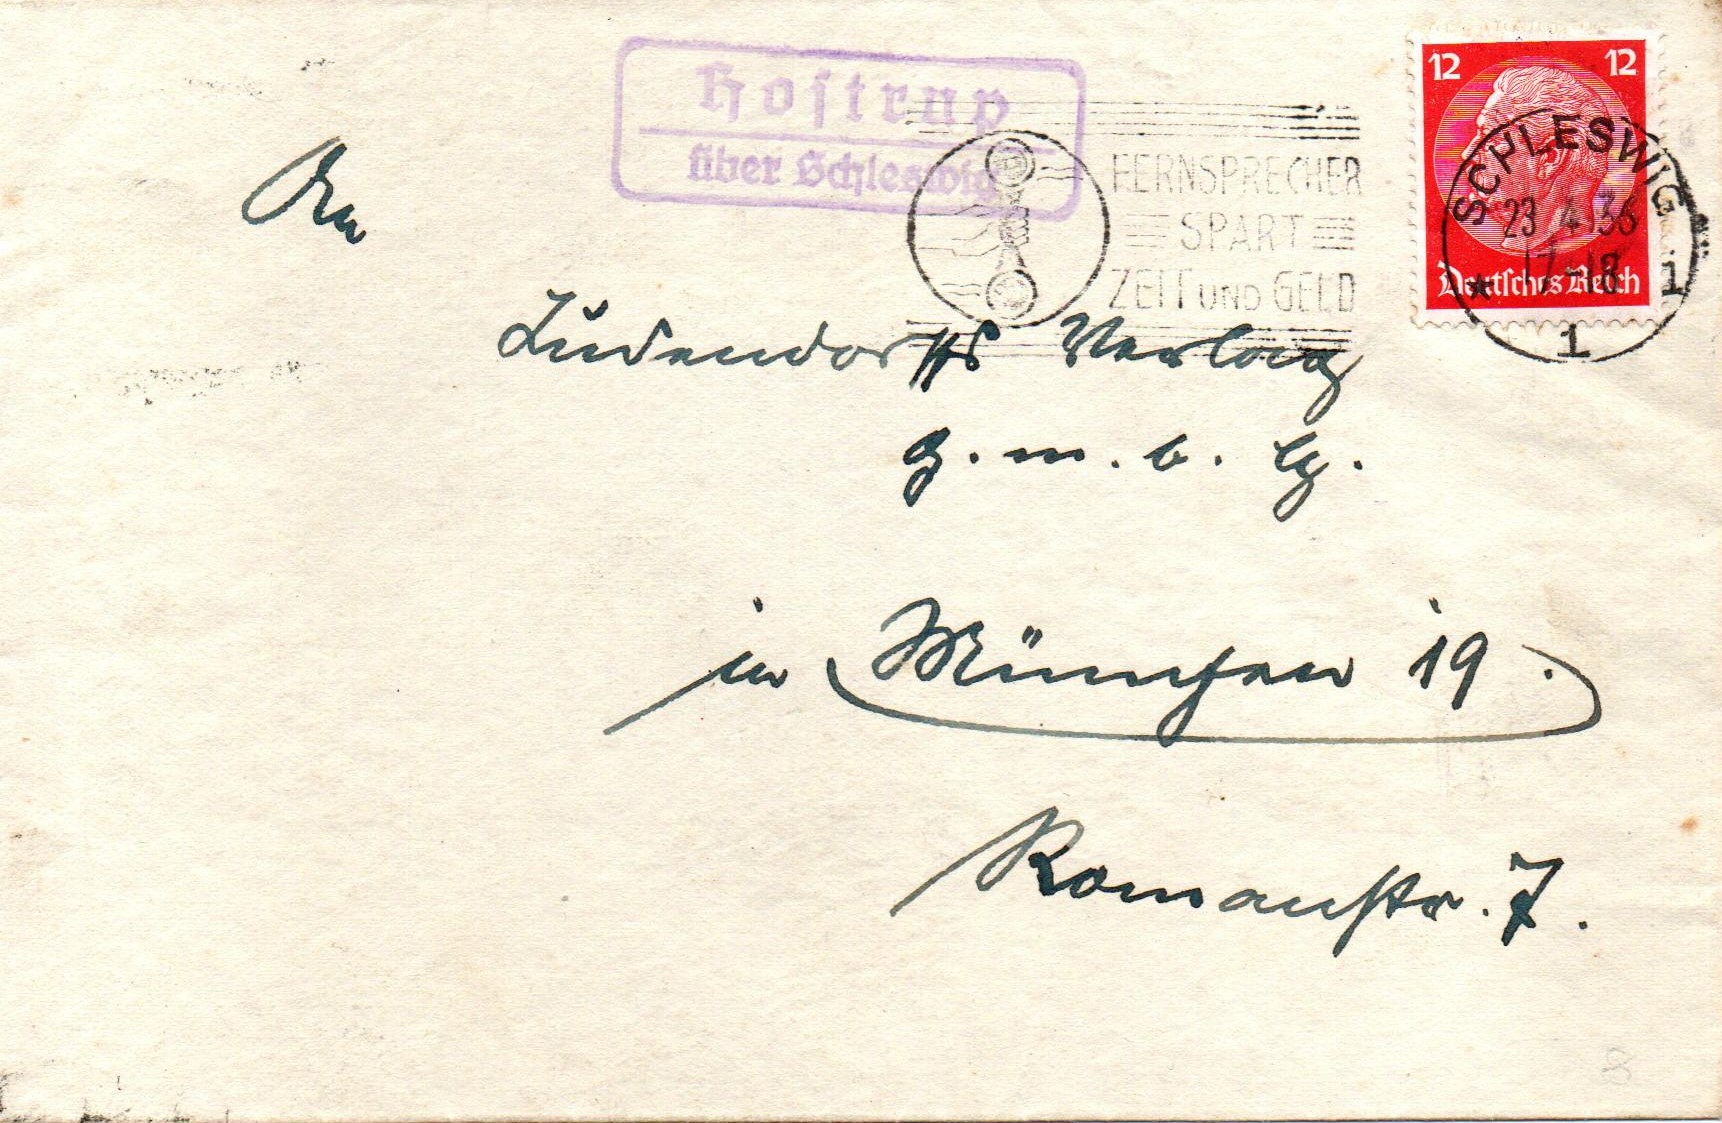 Hostrup
über Schleswig
FERNSPRECHER
SPART
ZEIT UND GELD
12 12
SCHLESWIG
23.4.36
17-18
* i
1
Deutsches Reich
An
Ludendorffs Verlag
G. m. b. H.
in München 19.
Romanstr. 7.
8